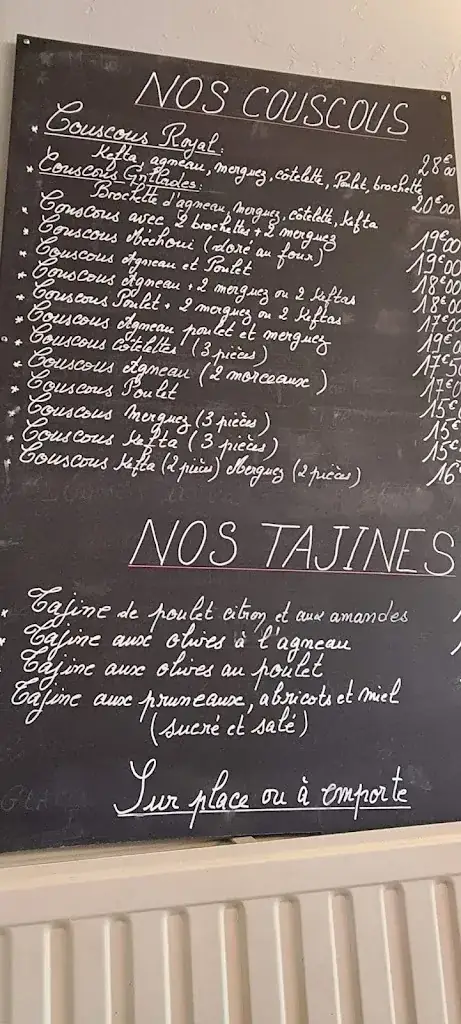 NOS COUSCOUS
* Couscous Royal: 28€00
Kefta, agneau, merguez, côtelette, Poulet, brochette
* Couscous Grillades: 20€00
Brochette d'agneau, merguez, côtelette, kefta
* Couscous avec 2 brochettes + 2 merguez 19€00
* Couscous Méchoui (doré au four) 19€00
* Couscous Agneau et Poulet 18€00
* Couscous Agneau + 2 merguez ou 2 Keftas 18€00
* Couscous Poulet + 2 merguez ou 2 Keftas 17€00
* Couscous Agneau poulet et merguez 19€0
* Couscous côtelettes (3 pièces) 17€50
* Couscous Agneau (2 morceaux) 17€0
* Couscous Poulet 15€
* Couscous Merguez (3 pièces) 15€
* Couscous Kefta (3 pièces) 15€
* Couscous Kefta (2 pièces) Merguez (2 pièces) 16
NOS TAJINES
* Tajine de poulet citron et aux amandes
* Tajine aux olives à l'agneau
Tajine aux olives au poulet
Tajine aux pruneaux, abricots et miel
(sucré et salé)
Sur place ou à emporte